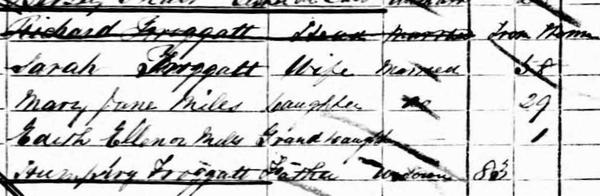 Richard Froggatt Head Married Iron
Sarah Froggatt Wife Married 58
Mary Jane Miles Daughter do 29
Edith Ellenor Miles Grand Daught 1
Humpery Froggatt Father Widower 83